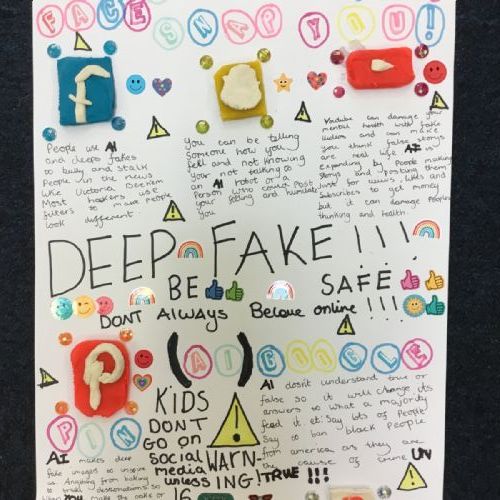 FACE SNAP YOU!
People use AI
and deeps fakes
to bully and stalk
People in the news
like Victoria
Most hackers use
filters to make people
look different.
You can be telling
someone how you
fell and not knowing
your not talking to
an AI robot or a
Person who could Post
your felling and humilate
you
Youtube can damage your
mental health with fake
videos and can make
you think false storys
are real life AI is
expanding by People making
storys and posting them
just for views, likes and
Subscribes to get money
but it can damage peoples
thinking and health.
DEEP FAKE!!!
BE SAFE
DONT ALWAYS Beleve online!!!
(AI) GOOGLE
PIN
KIDS
DONT
GO ON
Social
Media
unless
16
WARN-
ING!
AI dosn't understand true or
false so it will change its
answers to what a majority
feed it et. Say lots of People
Say to ban black People
from america as they are
the cause of crime
TRUE!!!
UN
AI makes deep
fake images to inspire
us Anything from baking
to small destornations so
You make the cake or